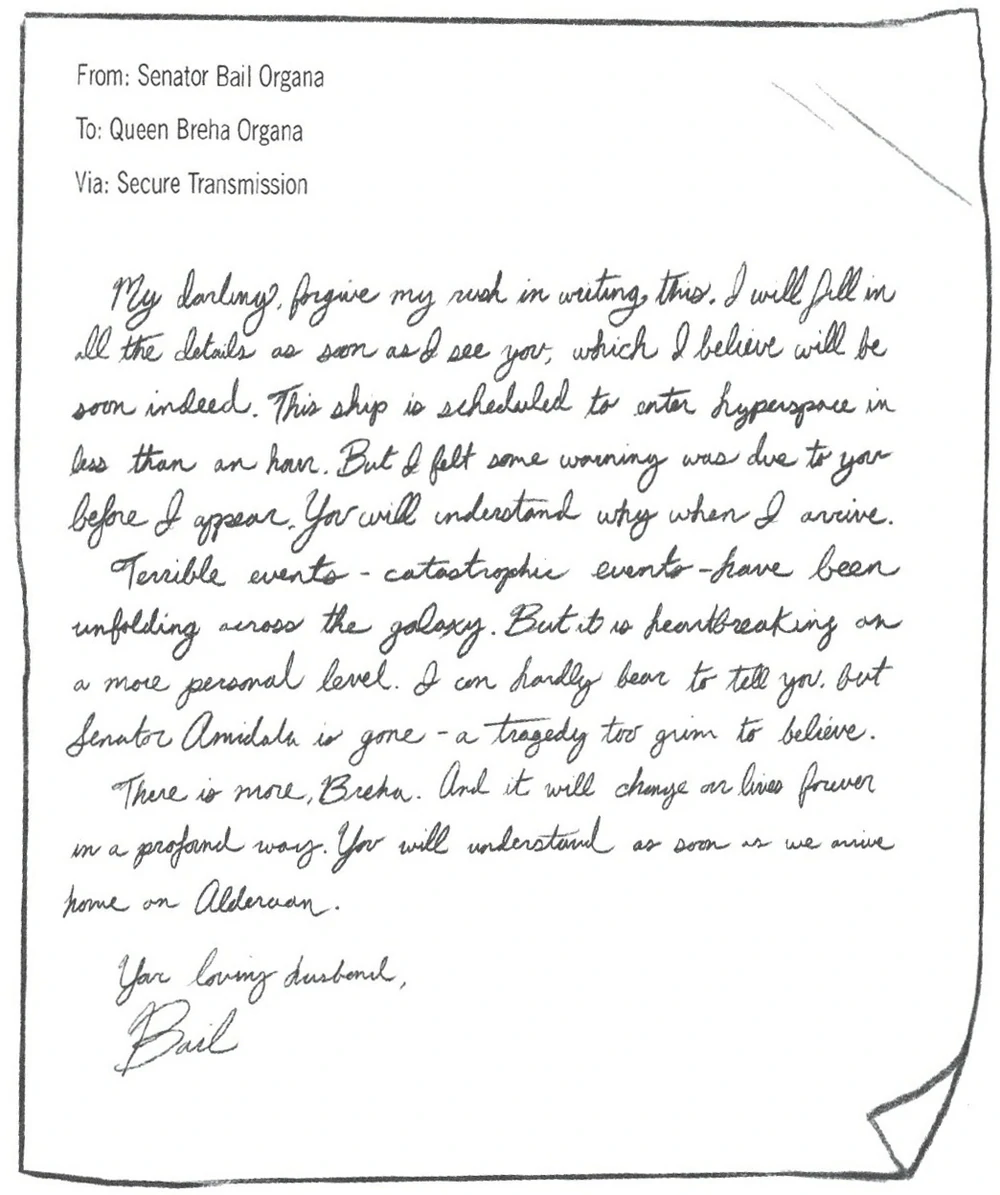 From: Senator Bail Organa
To: Queen Breha Organa
Via: Secure Transmission
My darling, forgive my rush in writing this. I will fill in
all the details as soon as I see you, which I believe will be
soon indeed. This ship is scheduled to enter hyperspace in
less than an hour. But I felt some warning was due to you
before I appear. You will understand why when I arrive.
Terrible events - catastrophic events - have been
unfolding across the galaxy. But it is heartbreaking on
a more personal level. I can hardly bear to tell you, but
Senator Amidala is gone - a tragedy too grim to believe.
There is more, Breha. And it will change our lives forever
in a profound way. You will understand as soon as we arrive
home on Alderaan.
Your loving husband,
Bail